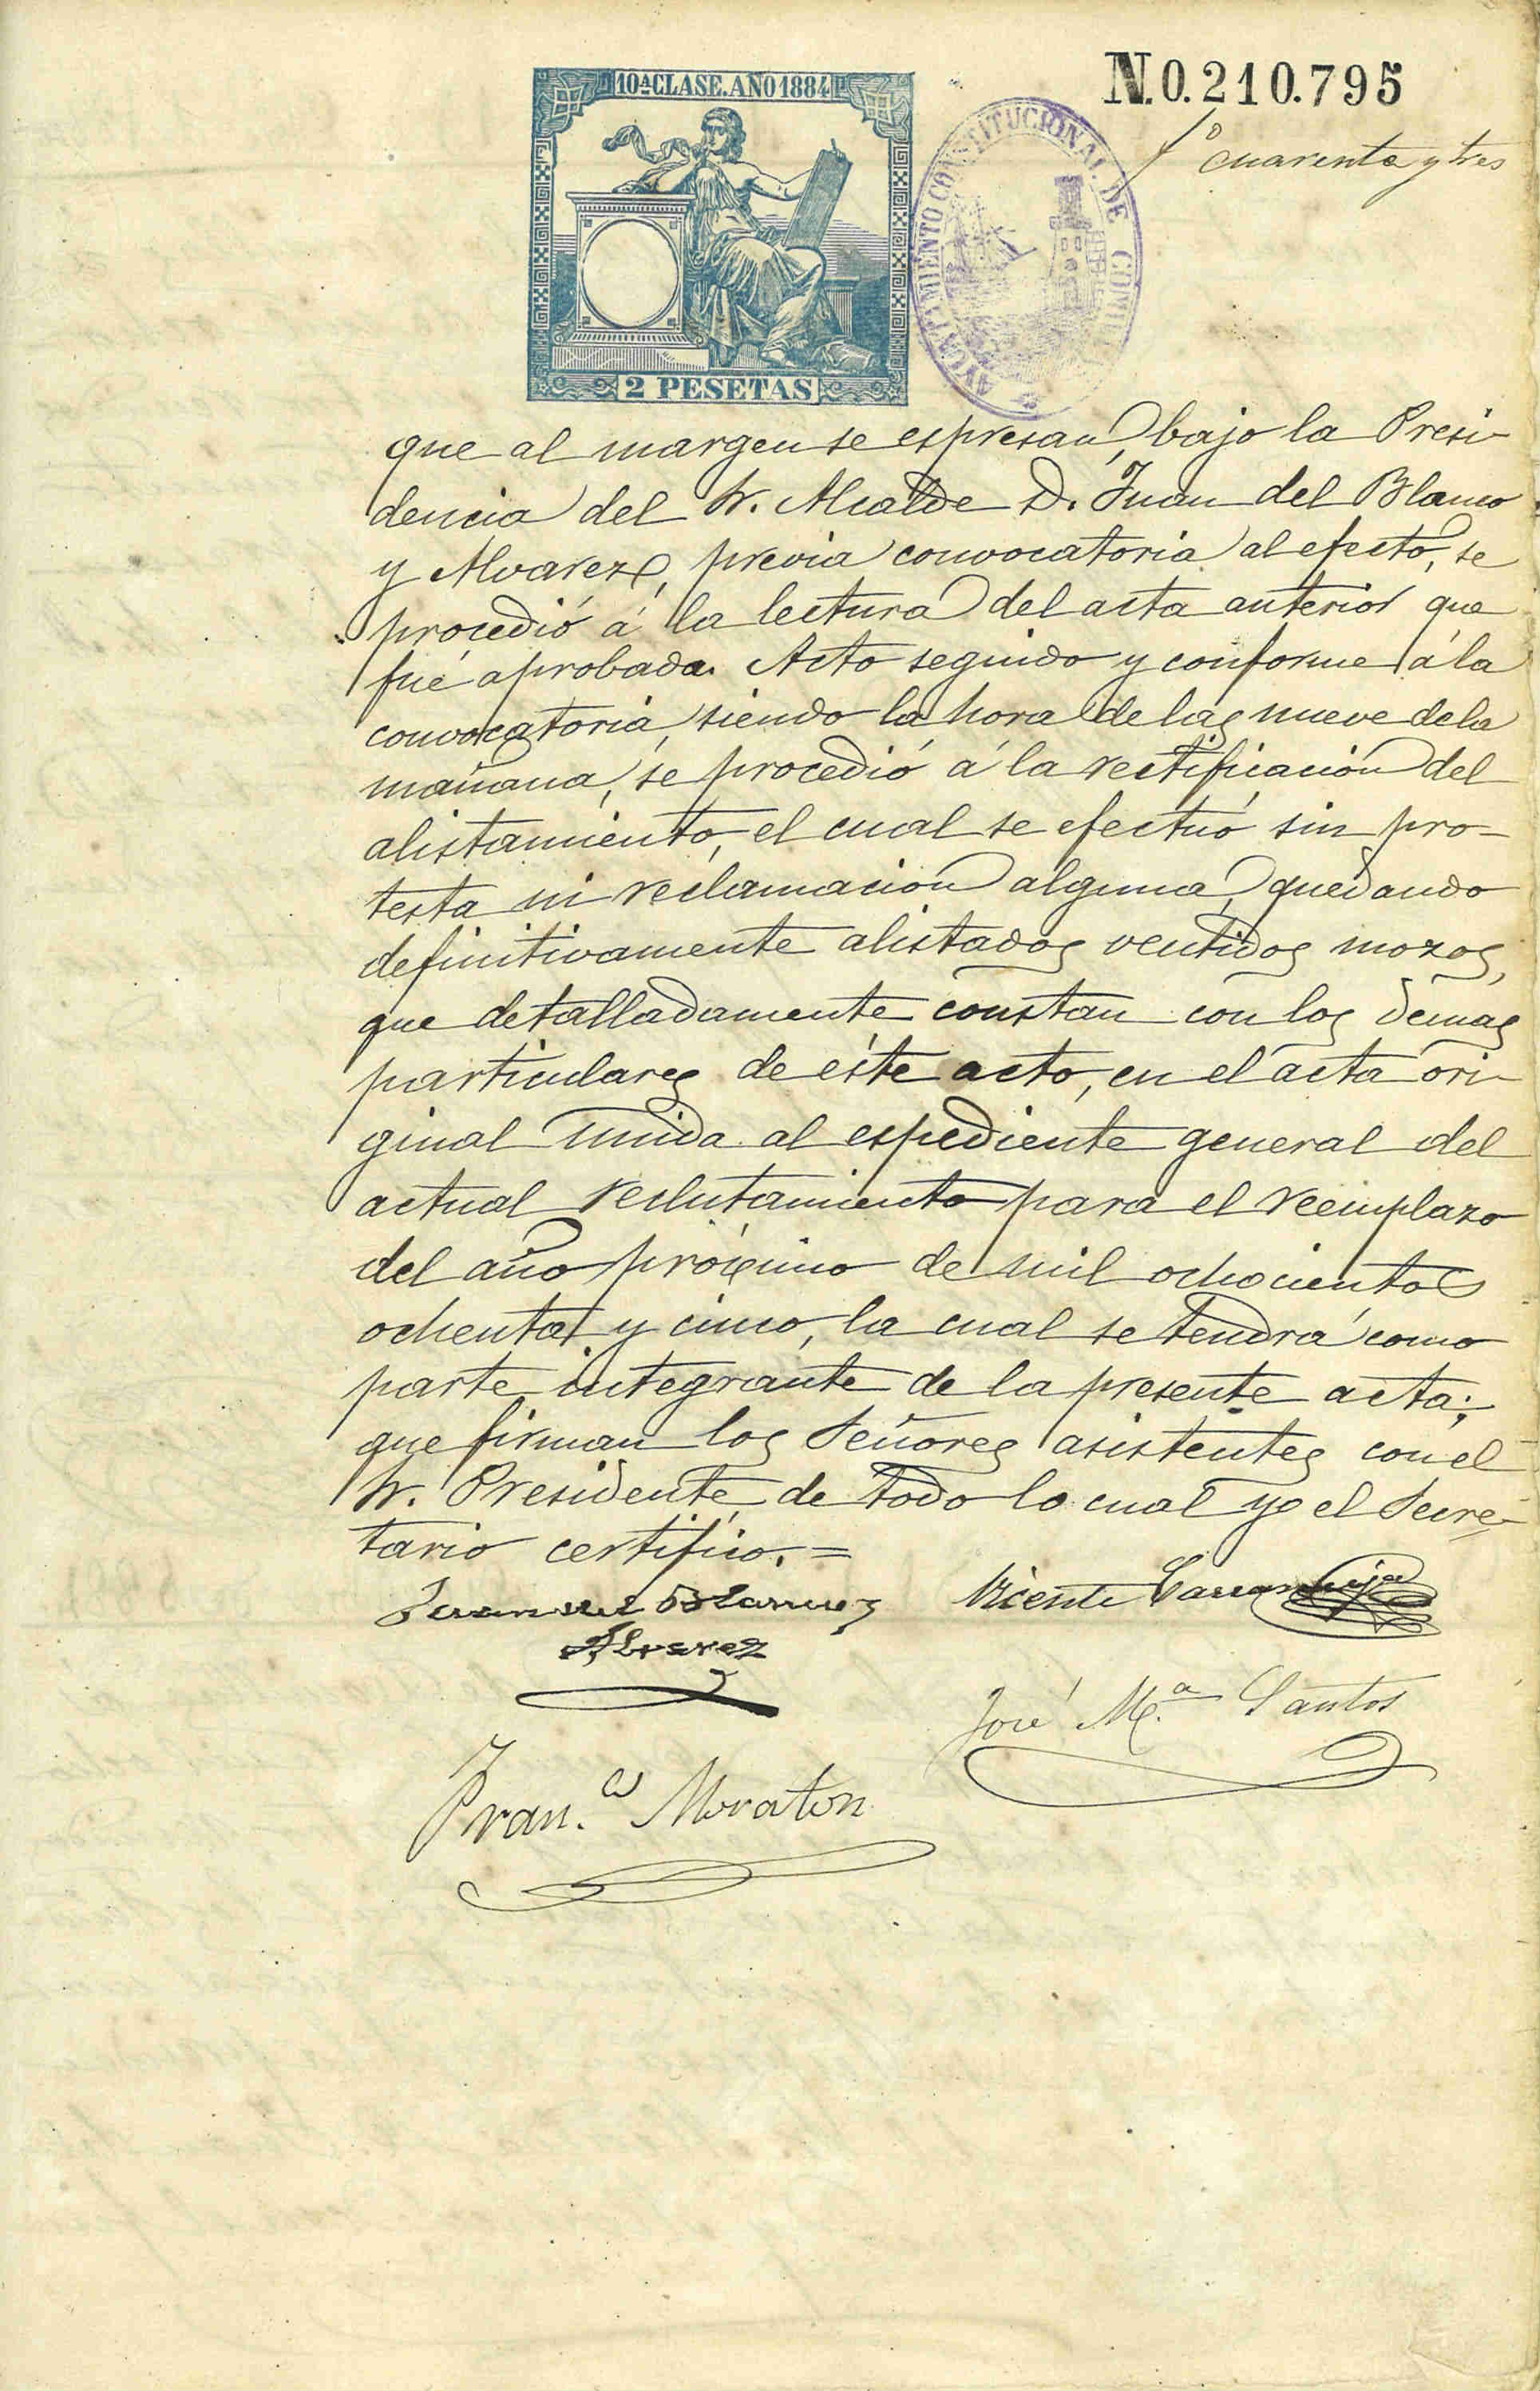 10ª CLASE. AÑO 1884
N.0.210.795
fº cuarenta y tres
AYUNTAMIENTO CONSTITUCIONAL DE COMILLAS
2 PESETAS
que al margen se espresan, bajo la Presi-
dencia del Sr. Alcalde D. Juan del Blanco
y Alvarez, previa convocatoria al efecto, se
procedió á la lectura del acta anterior que
fué aprobada. Acto seguido y conforme á la
convocatoria, siendo la hora de las nueve de la
mañana, se procedió á la rectificación del
alistamiento, el cual se efectuó sin pro-
testa ni reclamación alguna, quedando
definitivamente alistados ventidos mozos,
que detalladamente constan con los demas
particulares de éste acto, en el acta ori-
ginal unida al espediente general del
actual reclutamiento para el reemplazo
del año próximo de mil ochocientos
ochenta y cinco, la cual se tendrá como
parte integrante de la presente acta;
que firman los Señores asistentes con el
Sr. Presidente de todo lo cual yo el Secre-
tario certifico. =
Juan del Blanco y Vicente
Alvarez
José M.ª Santos
Fran.co Moraton